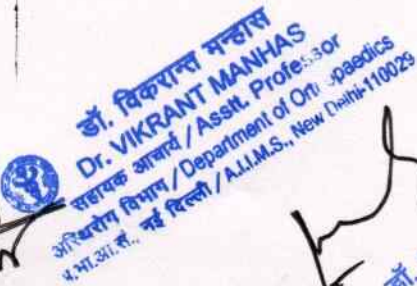 डॉ. विकरान्त मन्हास
Dr. VIKRANT MANHAS
सहायक आचार्य / Asstt. Professor
अस्थिरोग विभाग / Department of Orthopaedics
अ.भा.आ.सं., नई दिल्ली / A.I.I.M.S., New Delhi-110029
डॉ.